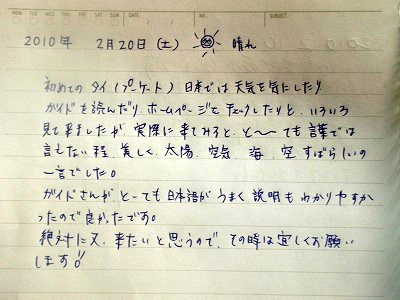 MON TUE WED THU FRI SAT SUN DATE NO. SUBJECT
2010年 2月20日(土) 晴れ
初めての タイ(プーケート) 日本では天気を気にしたり
ガイドを読んだり、ホームページをチェックしたりと、いろいろ
見て来ましたが、実際に来てみると、と〜ても言葉では
言えない程、美しく、太陽、空気、海、空すばらしいの
一言でした。
ガイドさんが、とーっても日本語がうまく説明もわかりやすか
ったので良かったです。
絶対に又、来たいと思うので、その時は宜しくお願い
します!